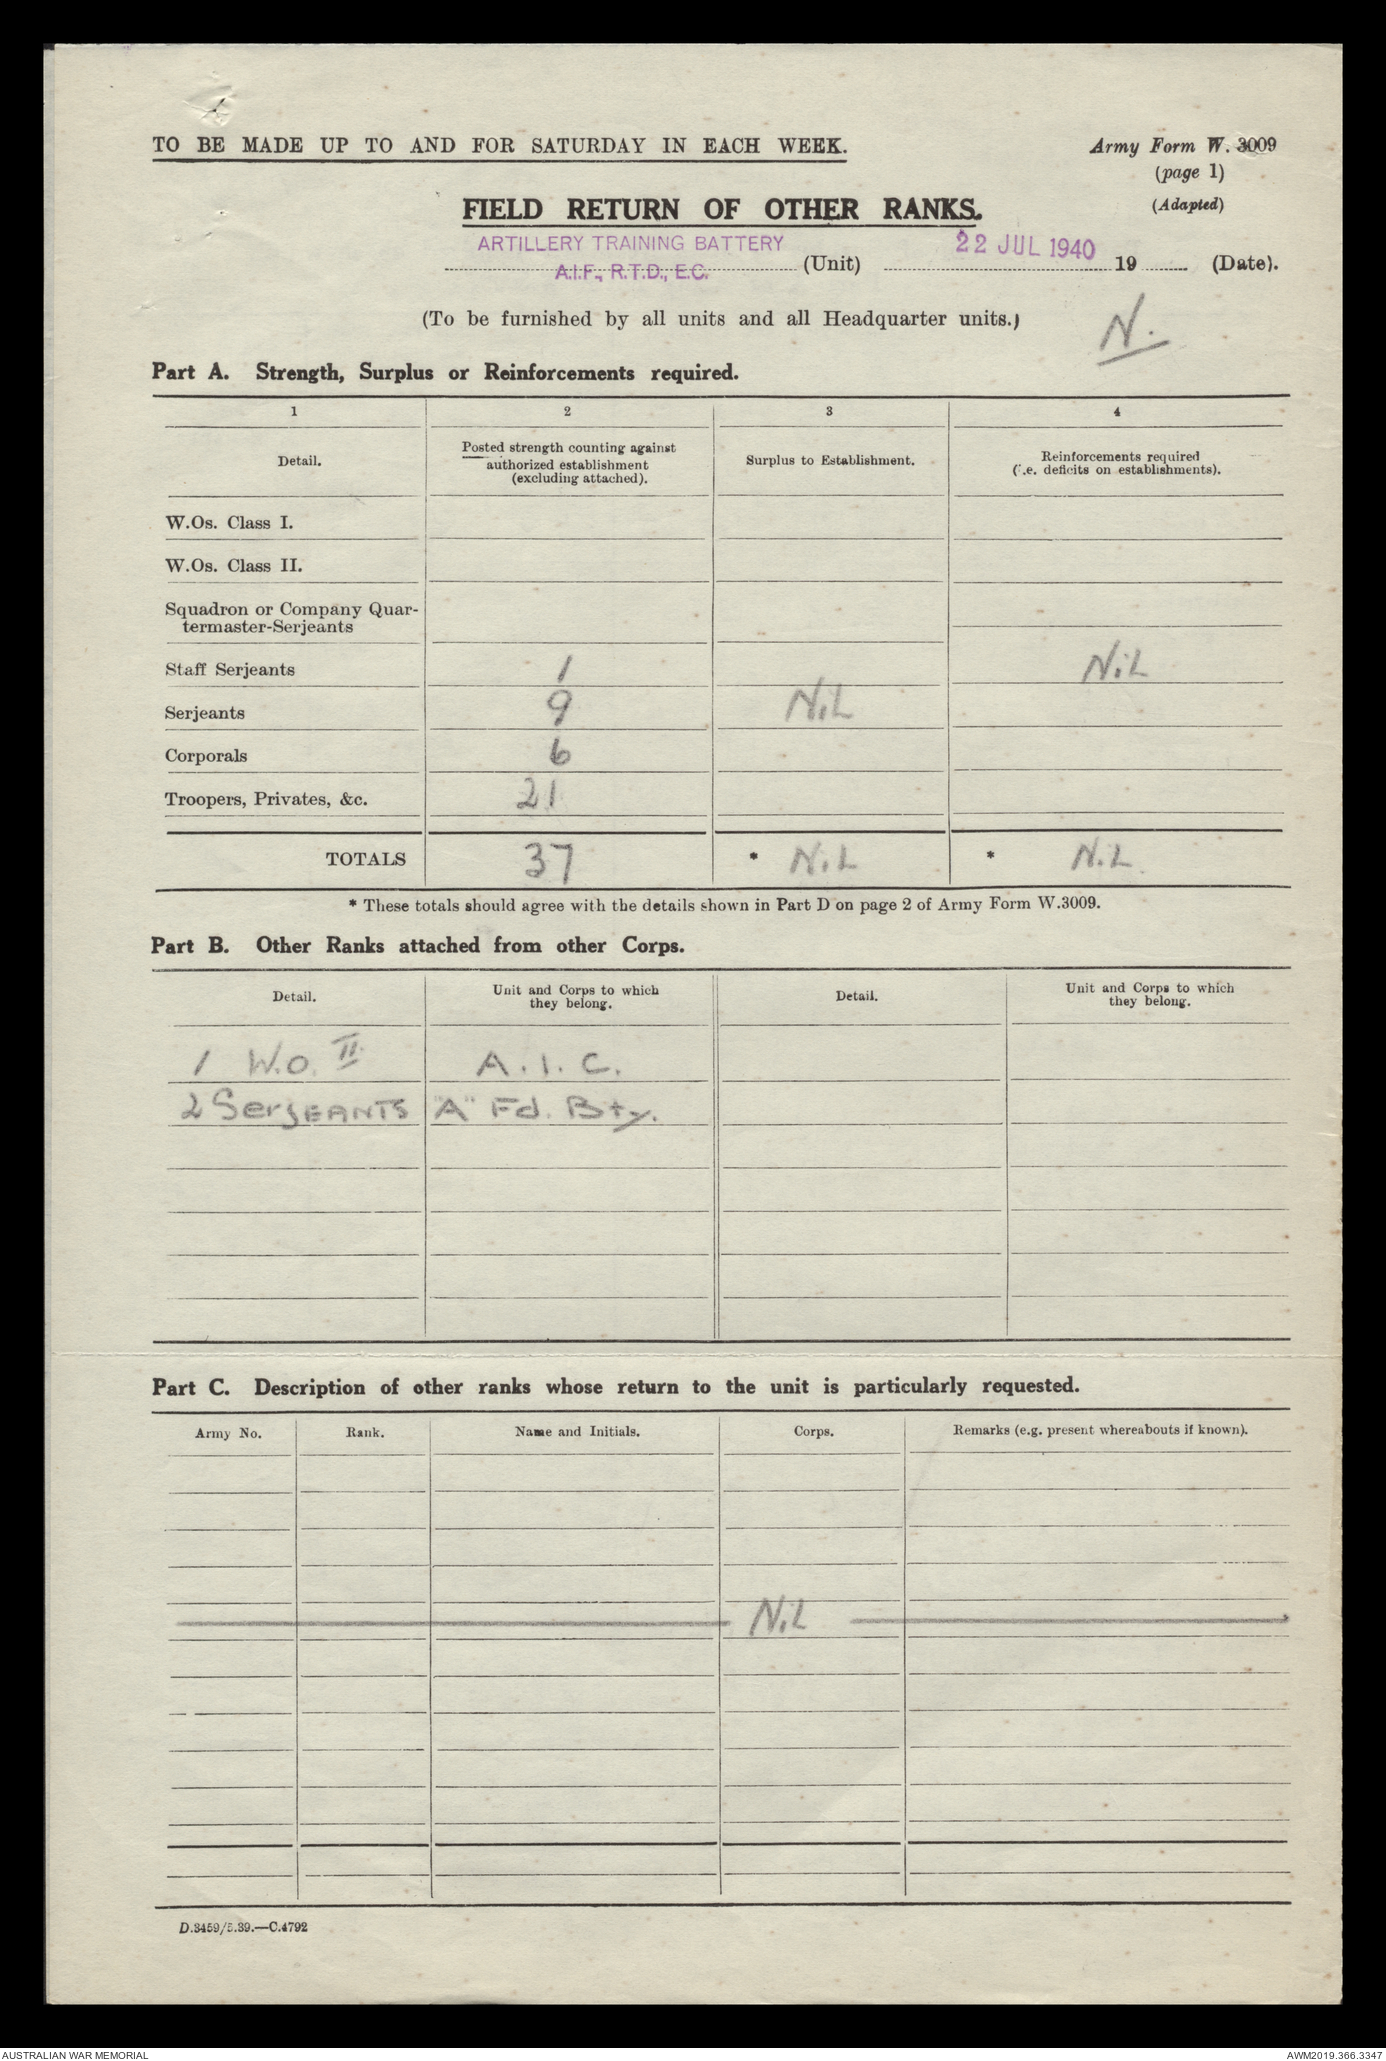 TO BE MADE UP TO AND FOR SATURDAY IN EACH WEEK.
Army Form W. 3009
(page 1)
(Adapted)
FIELD RETURN OF OTHER RANKS.
ARTILLERY TRAINING BATTERY
A.I.F., R.T.D., E.C. (Unit) 22 JUL 1940 19 (Date).
(To be furnished by all units and all Headquarter units.)
N.
Part A. Strength, Surplus or Reinforcements required.
1 2 3 4
Detail. Posted strength counting against authorized establishment (excluding attached). Surplus to Establishment. Reinforcements required (i.e. deficits on establishments).
W.Os. Class I.
W.Os. Class II.
Squadron or Company Quar-
termaster-Serjeants
Staff Serjeants 1 NiL
Serjeants 9 NiL
Corporals 6
Troopers, Privates, &c. 21
TOTALS 37 * NiL * NiL
* These totals should agree with the details shown in Part D on page 2 of Army Form W.3009.
Part B. Other Ranks attached from other Corps.
Detail. Unit and Corps to which they belong. Detail. Unit and Corps to which they belong.
1 W.O. II A.I.C.
2 SerJEANTS "A" Fd. Bty.
Part C. Description of other ranks whose return to the unit is particularly requested.
Army No. Rank. Name and Initials. Corps. Remarks (e.g. present whereabouts if known).
NiL
D.3459/5.39.—C.4792
AUSTRALIAN WAR MEMORIAL
AWM2019.366.3347